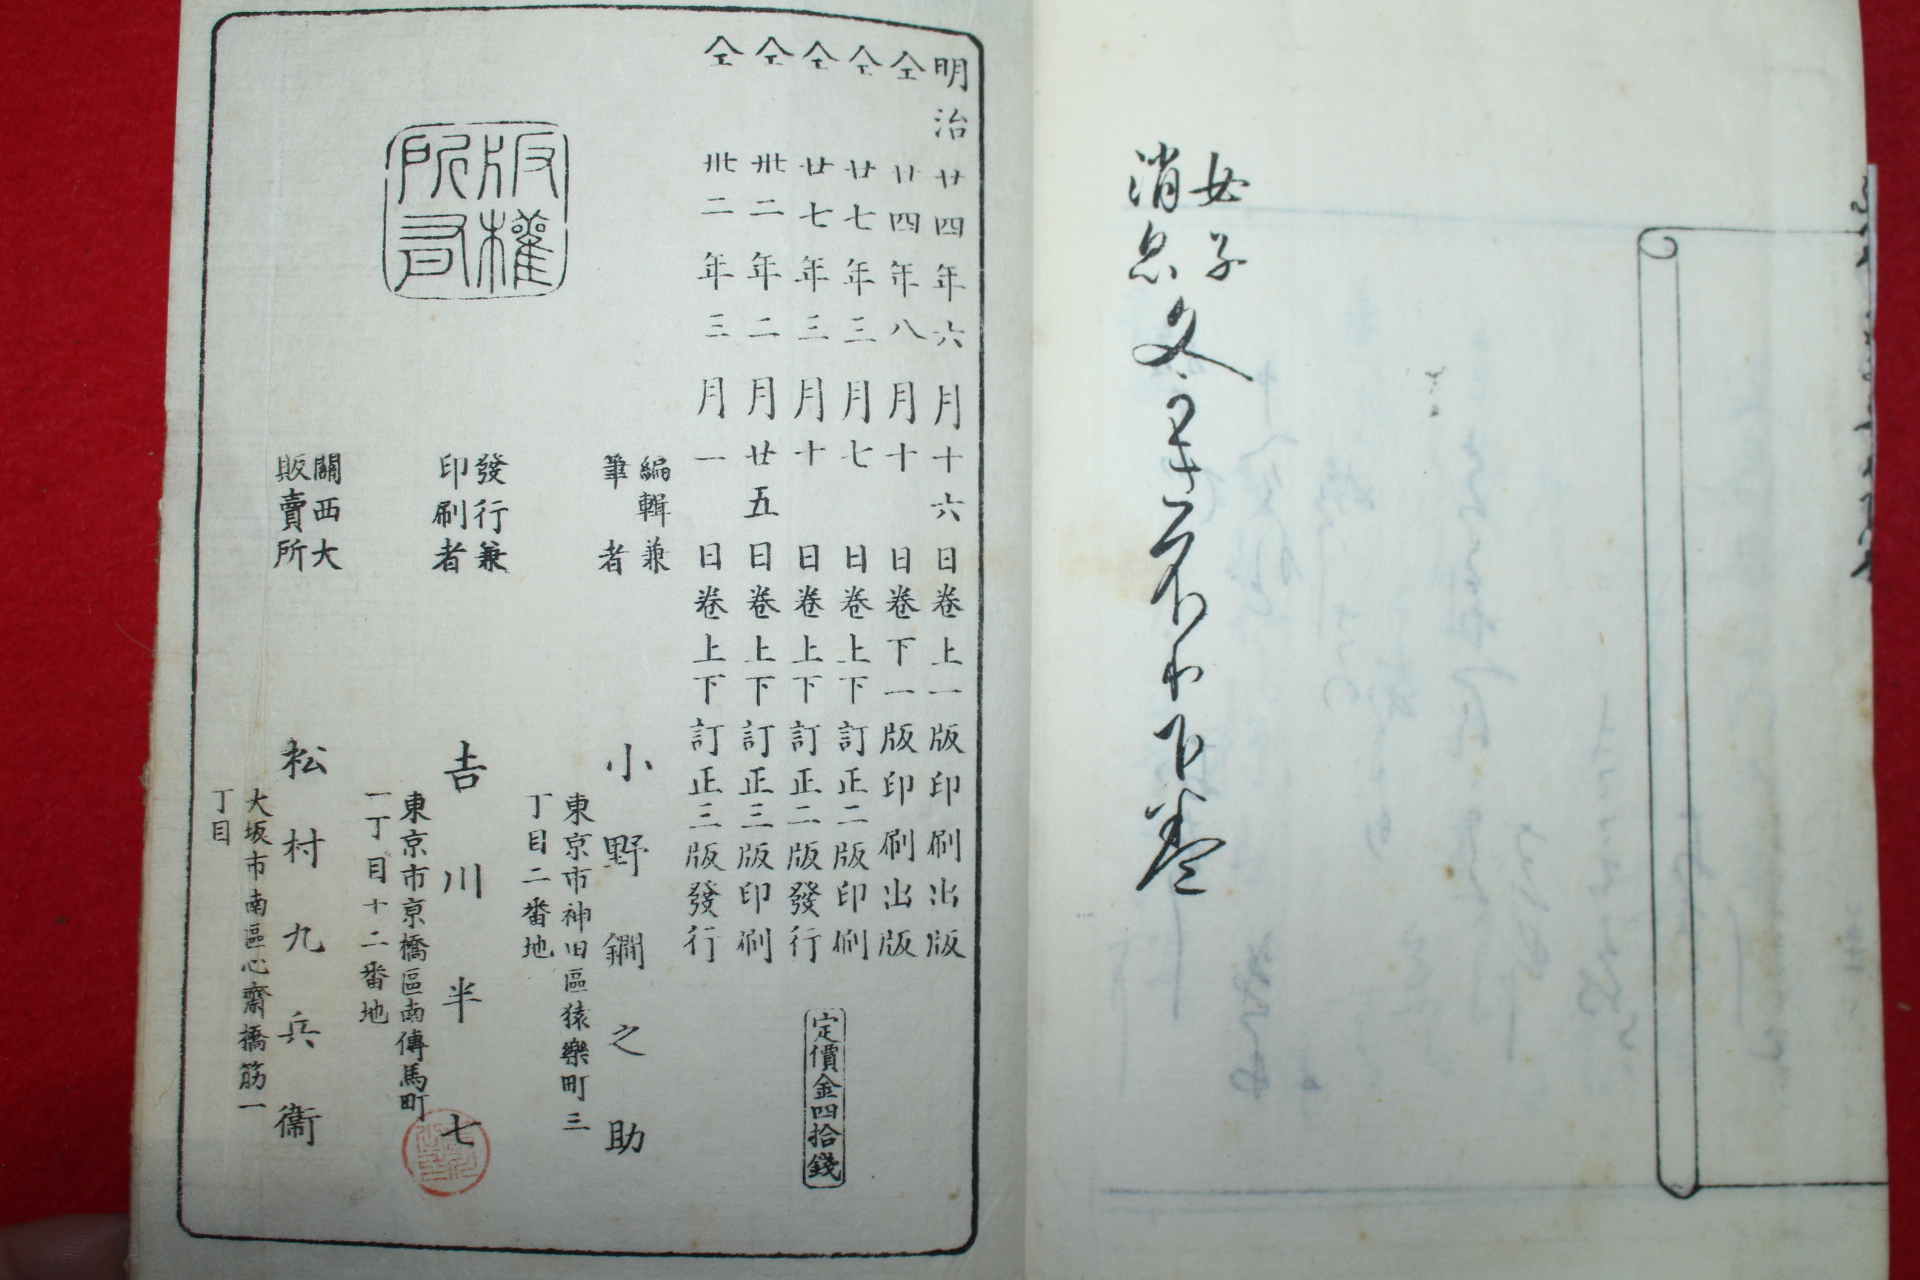 女子
消息
文
下巻
明治廿四年六月十六日巻上一版印刷出版
仝廿四年八月十日巻下一版印刷出版
仝廿七年三月七日巻上下訂正二版印刷
仝廿七年三月十日巻上下訂正二版發行
仝丗二年二月廿五日巻上下訂正三版印刷
仝丗二年三月一日巻上下訂正三版發行
定價金四拾錢
編輯兼
筆者
小野鐗之助
東京市神田區猿樂町三
丁目二番地
發行兼
印刷者
吉川半七
東京市京橋區南傳馬町
一丁目十二番地
關西大
販賣所
松村九兵衞
大坂市南區心齋橋筋一
丁目
版權
所有